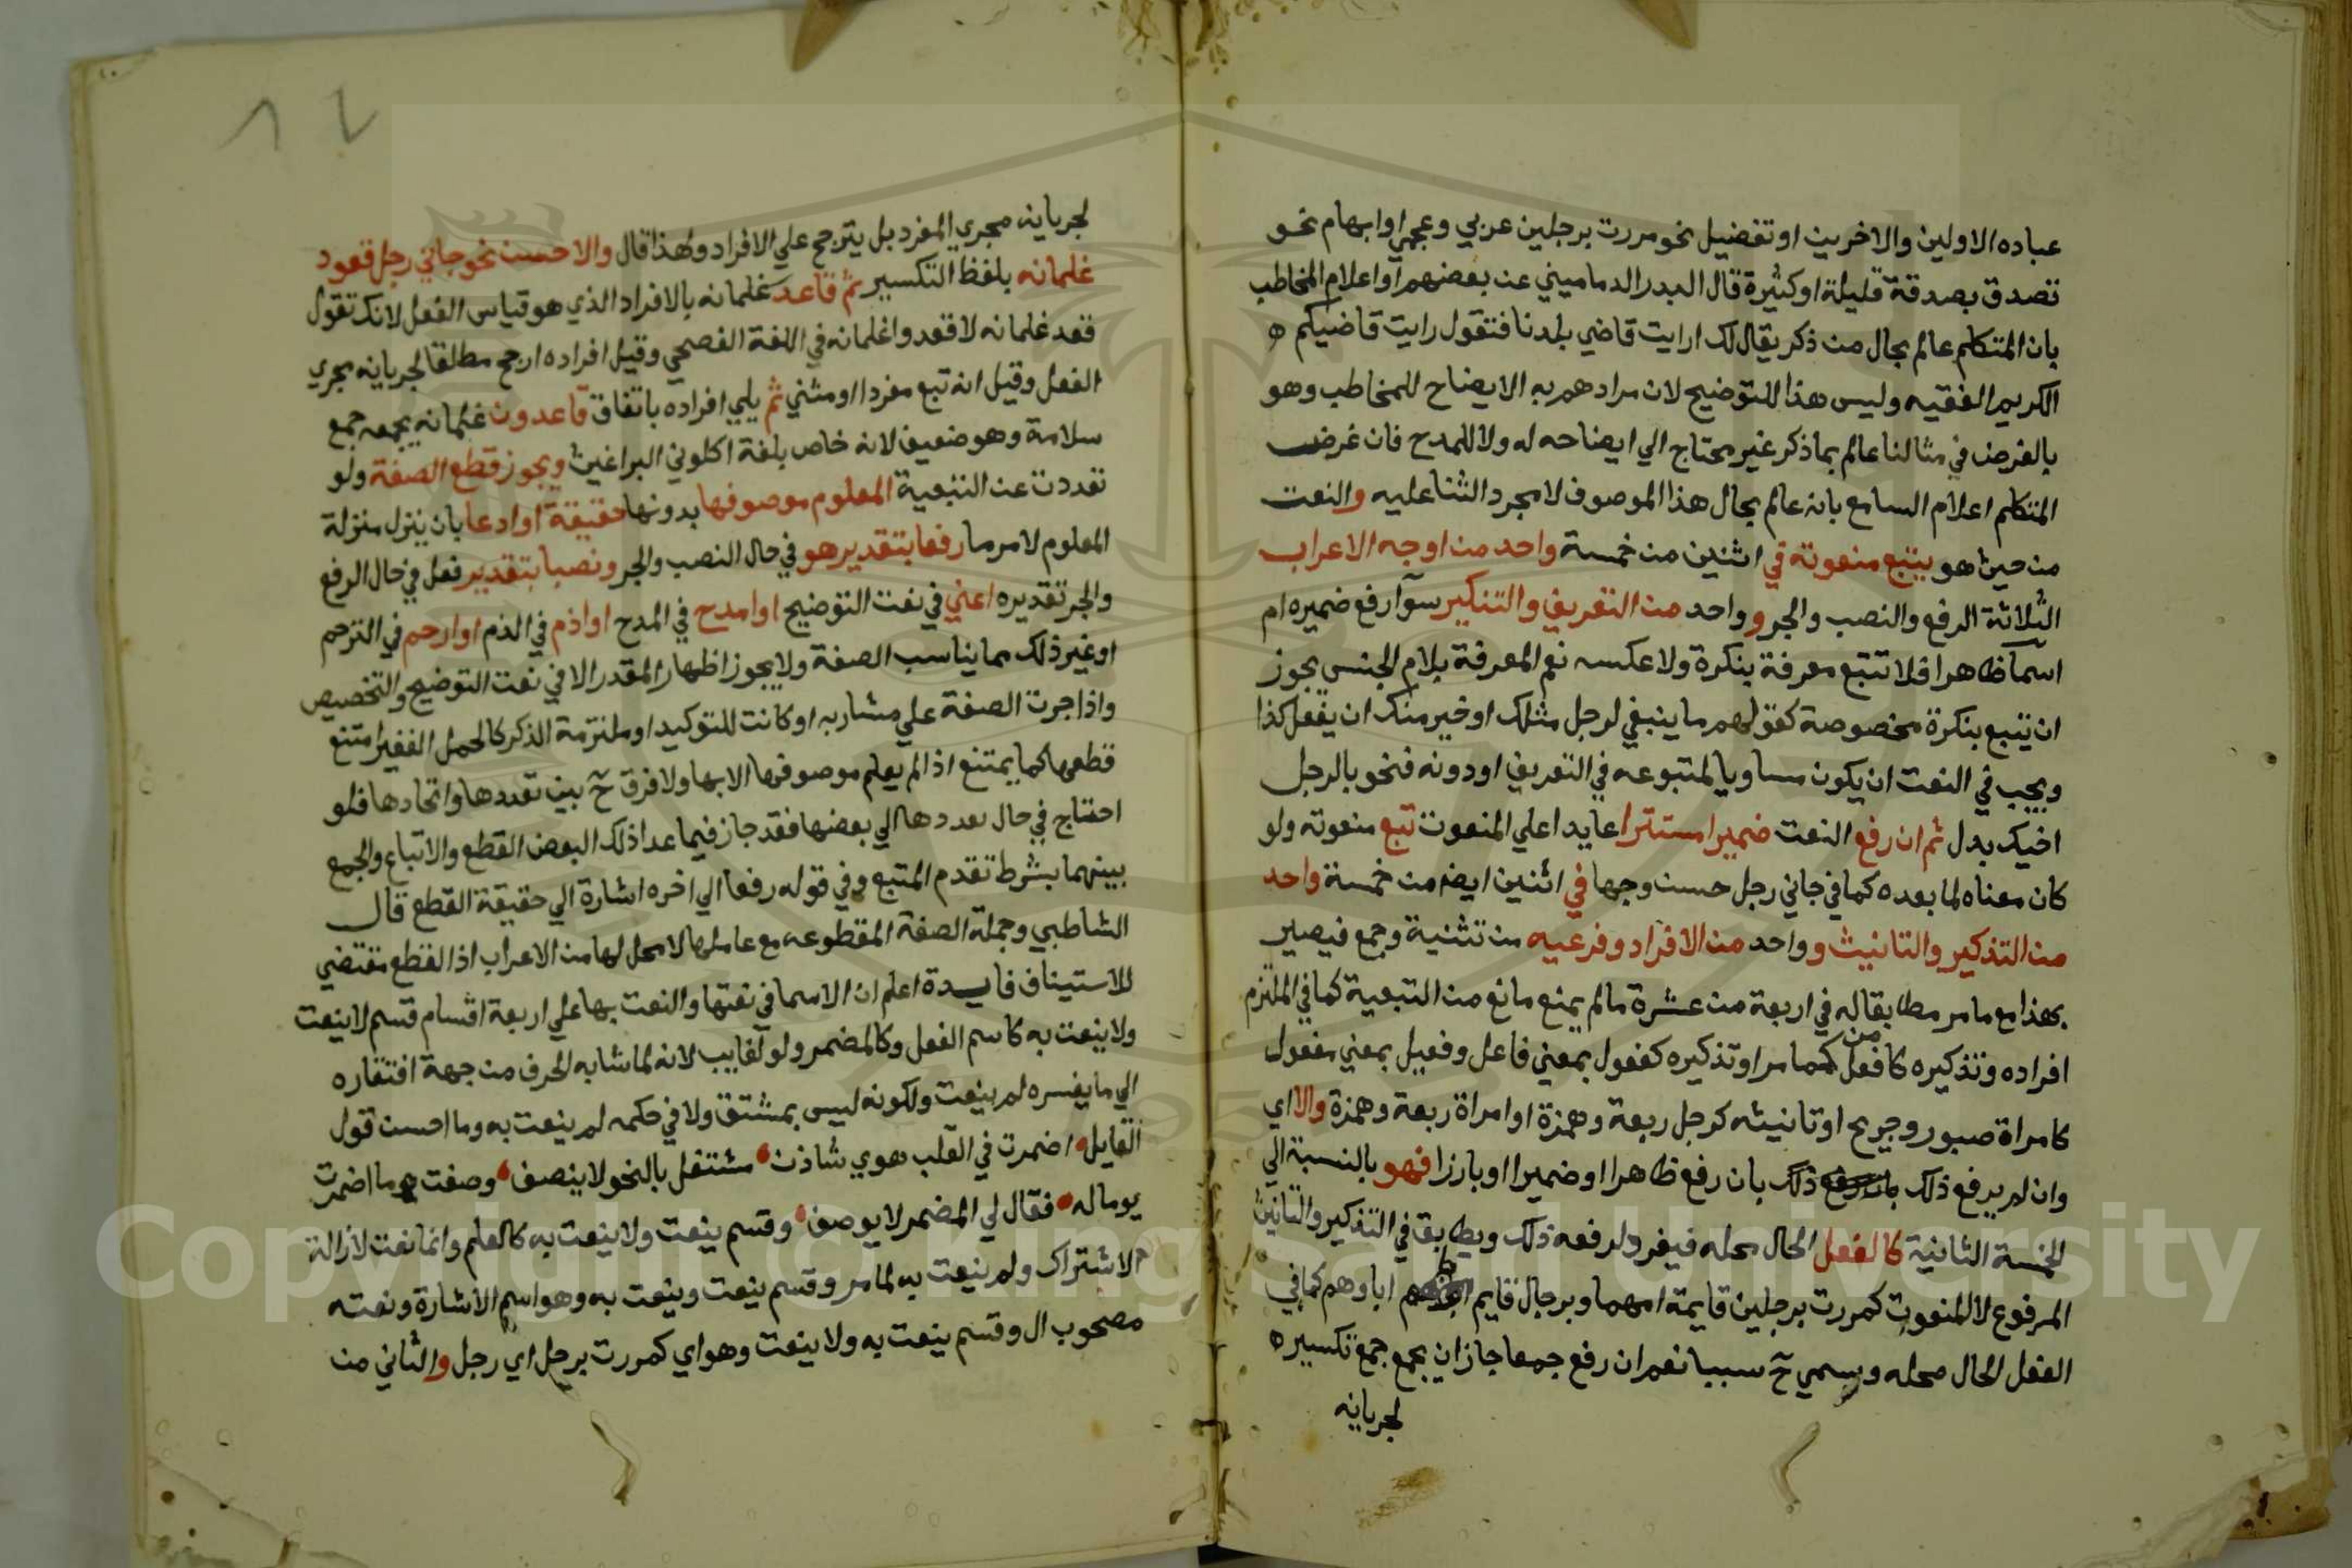 عباده الاولين والاخرين او تفضيل نحو مررت برجلين عربي وعجمي او ابهام نحو
تصدق بصدقة قليلة او كثيرة قال البدر الدماميني عن بعضهم او اعلام المخاطب
بان المتكلم عالم بحال من ذكر يقال لك ارايت قاضي بلدنا فتقول رايت قاضيكم ه
الكريم الفقيه وليس هذا للتوضيح لان مرادهم به الايضاح للمخاطب وهو
بالفرض في مثالنا عالم بما ذكر غير محتاج الي ايضاحه له ولا للمدح فان غرض
المتكلم اعلام السامع بانه عالم بحال هذا الموصوف لا مجرد الثنا عليه والنعت
من حيث هو يتبع منعوته في اثنين من خمسة واحد من اوجه الاعراب
الثلاثة الرفع والنصب والجر وواحد من التعريف والتنكير سوآ رفع ضميره ام
اسما ظاهرا فلا تتبع معرفة بنكرة ولا عكسه نعم المعرفة بلام الجنس يجوز
ان تتبع بنكرة مخصوصة كقولهم ما ينبغي لرجل مثلك او خير منك ان يفعل كذا
ويجب في النعت ان يكون مساويا لمتبوعه في التعريف او دونه فنحو بالرجل
اخيك بدل ثم ان رفع النعت ضميرا مستترا عايدا علي المنعوت تبع منعوته ولو
كان معناه لما بعده كما في جاني رجل حسن وجها في اثنين ايضا من خمسة واحد
من التذكير والتانيث وواحد من الافراد وفرعيه من تثنية وجمع فيصير
بهذا مع ما مر مطابقا له في اربعة من عشرة ما لم يمنع مانع من التبعية كما في الملتزم
افراده وتذكيره كافعل من كما مر او تذكيره كفعول بمعني فاعل وفعيل بمعني مفعول
كامراة صبور وجريح او تانيثه كرجل ربعة وهمزة او امراة ربعة وهمزة والا اي
وان لم يرفع ذلك بان رفع ظاهرا او ضميرا او بارزا فهو بالنسبة الي
الخمسة الثانية كالفعل الحال محله فيفرد لرفعه ذلك ويطابق في التذكير والتانيث
المرفوع لا المنعوت كمررت برجلين قايمة امهما وبرجال قايم اباوهم كما في
الفعل الحال محله وسمي ح سببيا نعم ان رفع جمعا جاز ان يجمع جمع تكسير ه
لجريانه
لجريانه مجري المفرد بل يترجح علي الافراد ولهذا قال والاحسن نحو جاني رجل قعود
غلمانه بلفظ التكسير ثم قاعد غلمانه بالافراد الذي هو قياس الفعل لانك تقول
قعد غلمانه لا قعدوا غلمانه في اللغة الفصحي وقيل افراده ارجح مطلقا لجريانه مجري
الفعل وقيل ان تبع مفردا او مثني ثم يلي افراده باتفاق قاعدون غلمانه بجمعه جمع
سلامة وهو ضعيف لانه خاص بلغة اكلوني البراغيث ويجوز قطع الصفة ولو
تعددت عن التبعية المعلوم موصوفها بدونها حقيقة او ادعا بان ينزل منزلة
المعلوم لامر ما رفعا بتقدير هو في حال النصب والجر ونصبا بتقدير فعل في حال الرفع
والجر تقديره اعني في نعت التوضيح او امدح في المدح او اذم في الذم او ارحم في الترحم
او غير ذلك مما يناسب الصفة ولا يجوز اظهار المقدر الا في نعت التوضيح والتخصيص
واذا جرت الصفة علي مشار به او كانت للتوكيد او ملتزمة الذكر كالجمل الغفير امتنع
قطعها كما يمتنع اذا لم يعلم موصوفها الا بها ولا فرق ح بين تعددها واتحادها فلو
احتاج في حال تعددها الي بعضها فقد جاز فيما عدا ذلك البعض القطع والاتباع والجمع
بينهما بشرط تقدم المتبع وفي قوله رفعا الي اخره اشارة الي حقيقة القطع قال
الشاطبي وجملة الصفة المقطوعه مع عاملها لا محل لها من الاعراب اذ القطع مقتضي
للاستيناف فايدة اعلم ان الاسما في نعتها والنعت بها علي اربعة اقسام قسم لا ينعت
ولا ينعت به كاسم الفعل وكالمضمر ولو لغايب لانه لما شابه الحرف من جهة افتقاره
الي ما يفسره لم ينعت ولكونه ليس بمشتق ولا في حكمه لم ينعت به وما احسن قول
القايل اضمرت في القلب هوي شاذن مشتغل بالنحو لا ينصف وصفت ما اضمرت
يوما له فقال لي المضمر لا يوصف وقسم ينعت ولا ينعت به كالعلم وانما نعت لازالة
الاشتراك ولم ينعت به لما مر وقسم ينعت وينعت به وهو اسم الاشارة ونعته
مصحوب ال وقسم ينعت به ولا ينعت وهو اي كمررت برجل اي رجل والثاني من
Copyright © King Saud University